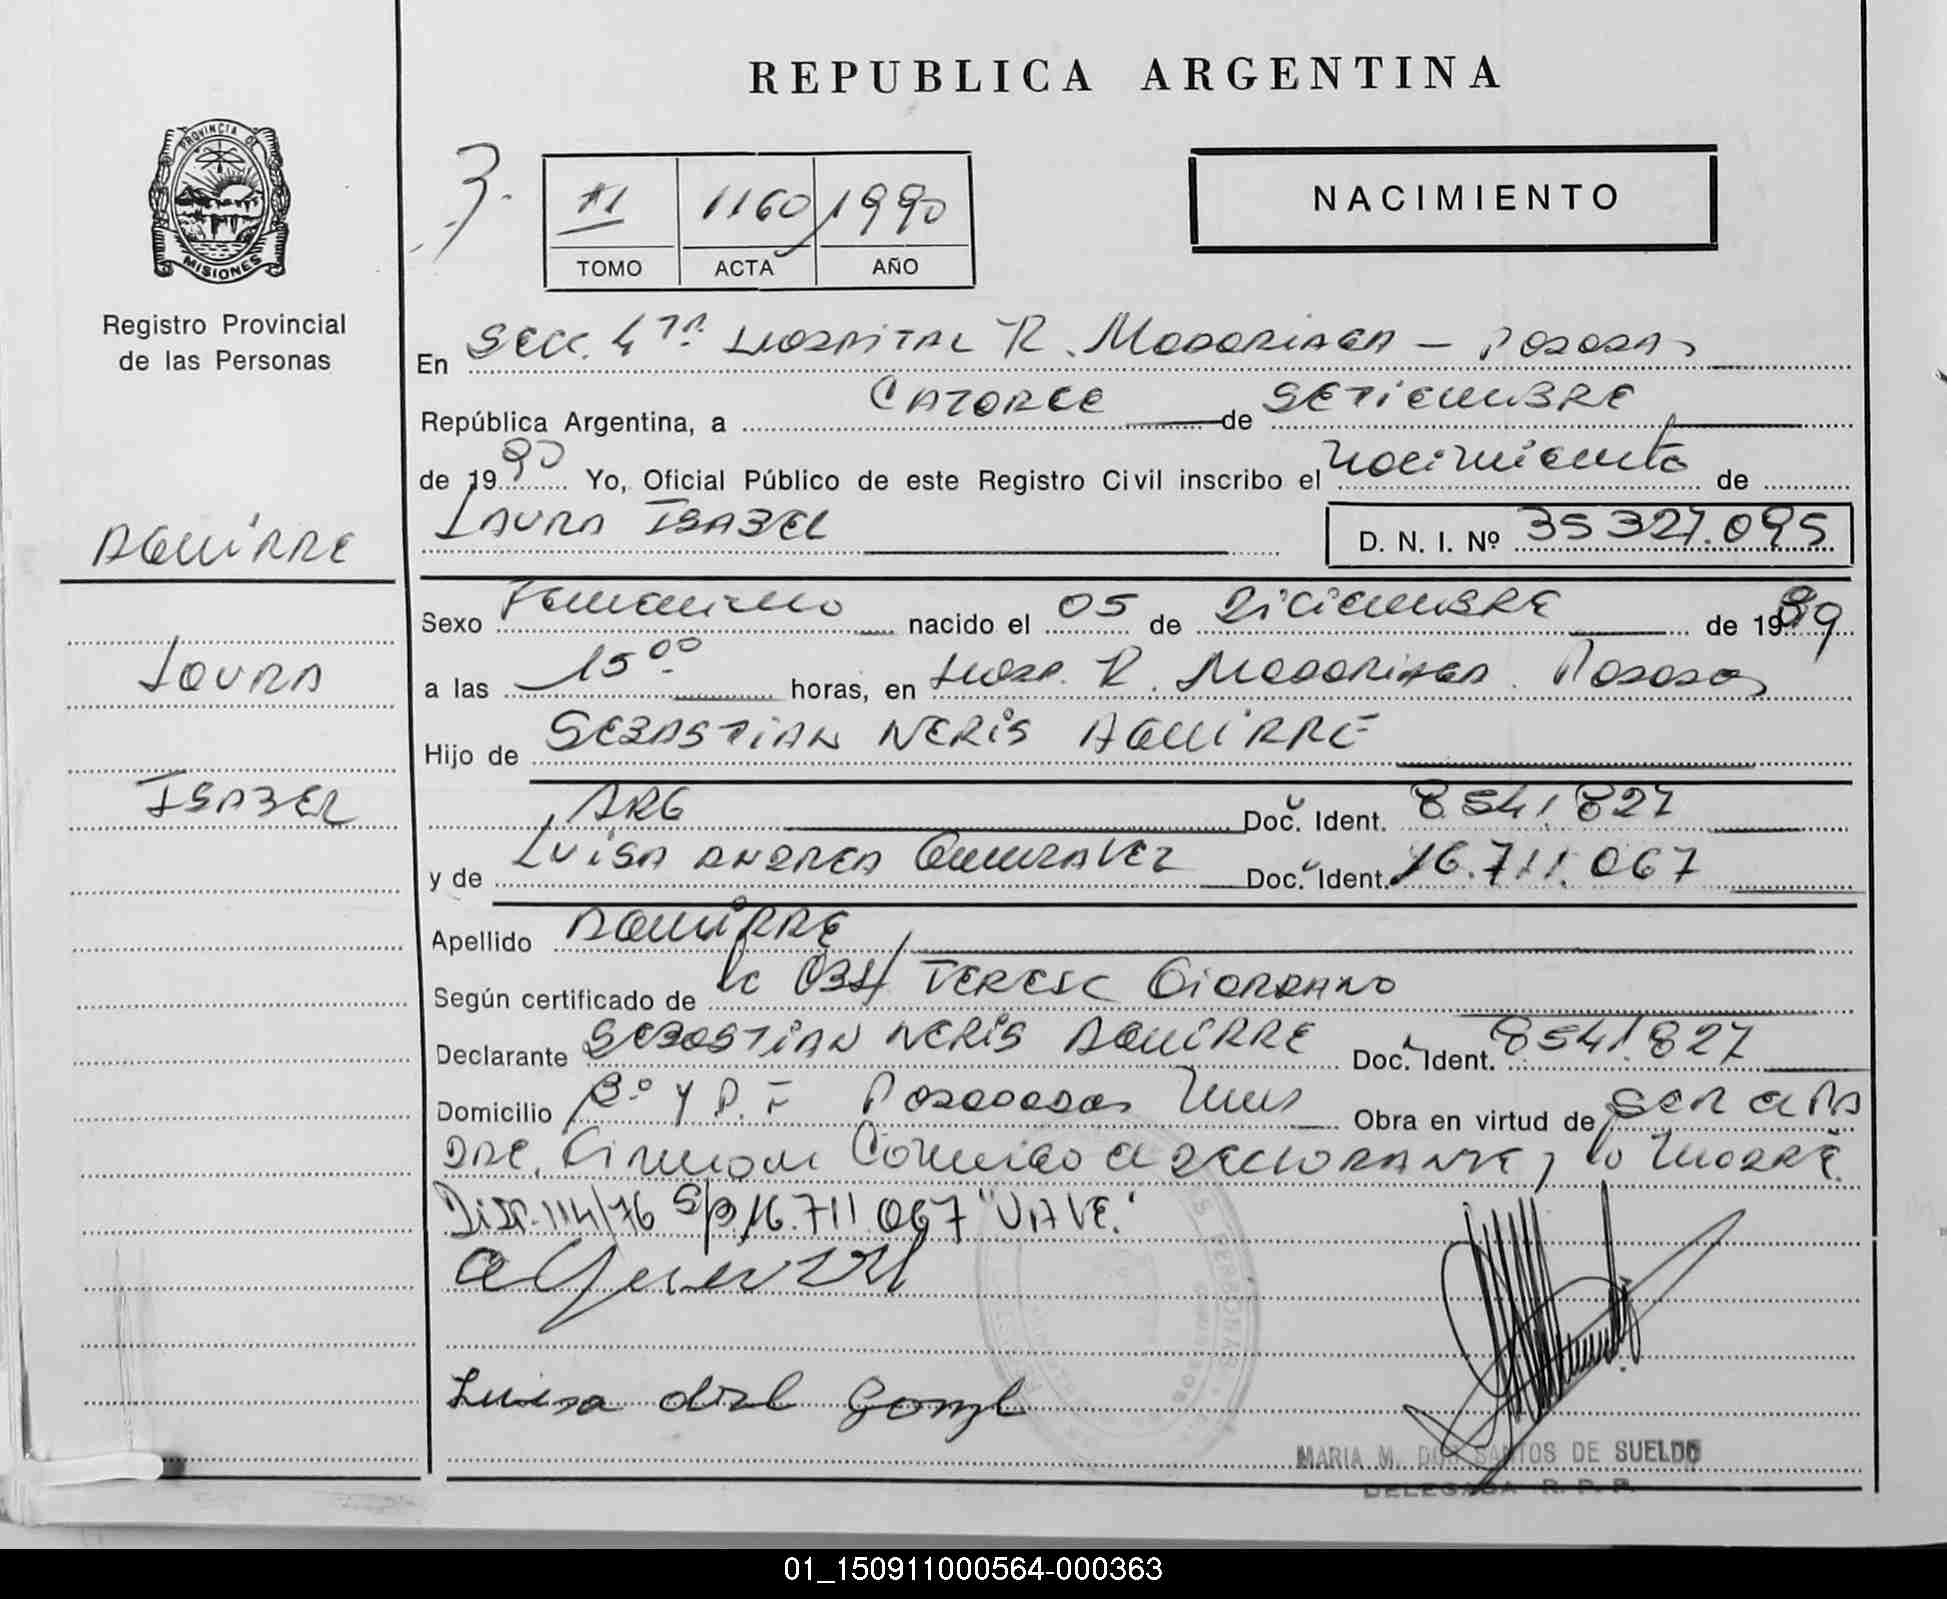 REPUBLICA ARGENTINA
PROVINCIA DE
MISIONES
Registro Provincial
de las Personas
3.
1160 1990
TOMO ACTA AÑO
NACIMIENTO
En Secc. 4ta HOSPITAL R. MADARIAGA – POSADAS
República Argentina, a CATORCE de SETIEMBRE
de 1990 Yo, Oficial Público de este Registro Civil inscribo el nacimiento de
LAURA ISABEL D. N. I. Nº 35327.095
AGUIRRE
LAURA
ISABEL
Sexo Femenino nacido el 05 de DICIEMBRE de 1989
a las 15 00 horas, en Hosp. R. MADARIAGA. Posadas
Hijo de SEBASTIAN NERIS AGUIRRE
ARG Doc. Ident. 8541827
y de LUISA ANDREA Doc. Ident. 16.711.067
Apellido AGUIRRE
Según certificado de OBST TERESA GIORDANO
Declarante SEBASTIAN NERIS AGUIRRE Doc. Ident. 8541.827
Domicilio Bº Y P. F Posadas Mnes Obra en virtud de SER EL PA
DRE. Firman Conmigo el DECLARANTE y la MADRE.
114/76 S/R 16.711.067 "VALE."
Luisa
MARIA M. DOS SANTOS DE SUELDO
DELEGADA R. P. P.
01_150911000564-000363